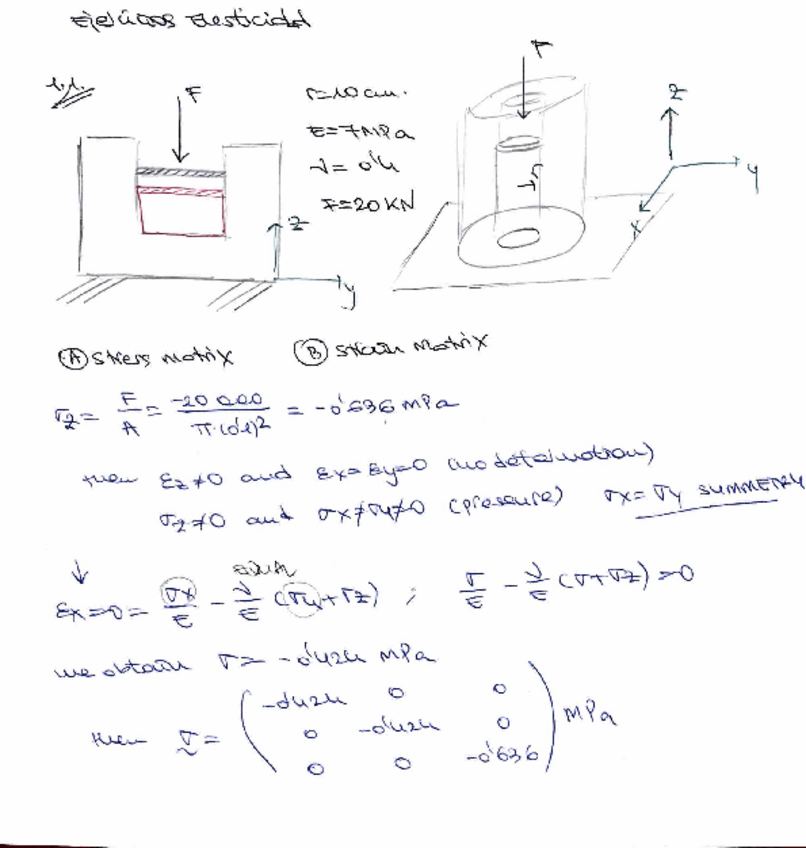 Ejercicios Elasticidad
1.1.
F
r=10cm.
E=7MPa
ν=0'4
F=20KN
z
y
F
r
z
y
x
Ⓐ Stress matrix Ⓑ Strain Matrix
σz = F/A = -20000/π·(0'1)² = -0'636 MPa
then εz≠0 and εx=εy=0 (no deformation)
σz≠0 and σx≠σy≠0 (pressure) σx=σy SUMMETRY
↓
εx=0= σx/E - ν/E (σy+σz) ; σ/E - ν/E (σ+σz)=0
we obtain σ= -0'424 MPa
then σ = ( -0'424 0 0
0 -0'424 0
0 0 -0'636 ) MPa